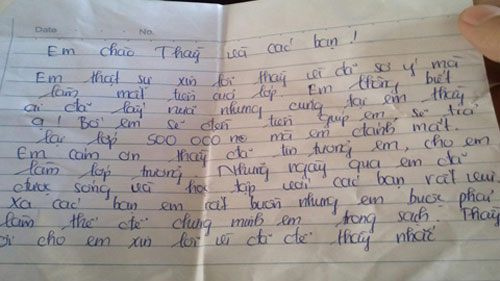 Date No.
Em chào Thầy và các bạn!
Em thật sự xin lỗi thầy vì đã sơ ý mà
làm mất tiền của lớp. Em không biết
ai đã lấy nưa nhưng cũng tại em thầy
ạ! Bố em sẽ đến tiền giúp em sẽ trả
lại lớp 500 000 mà em đánh mất.
Em cảm ơn thầy đã tin tưởng em, cho em
làm lớp trưởng. Những ngày qua em đã
được sống và học tập với các bạn rất vui.
Xa các bạn em rất buồn nhưng em buộc phải
làm thế để chứng minh em trong sạch. Thầy
cho em xin lỗi vì đã để thầy nhắc